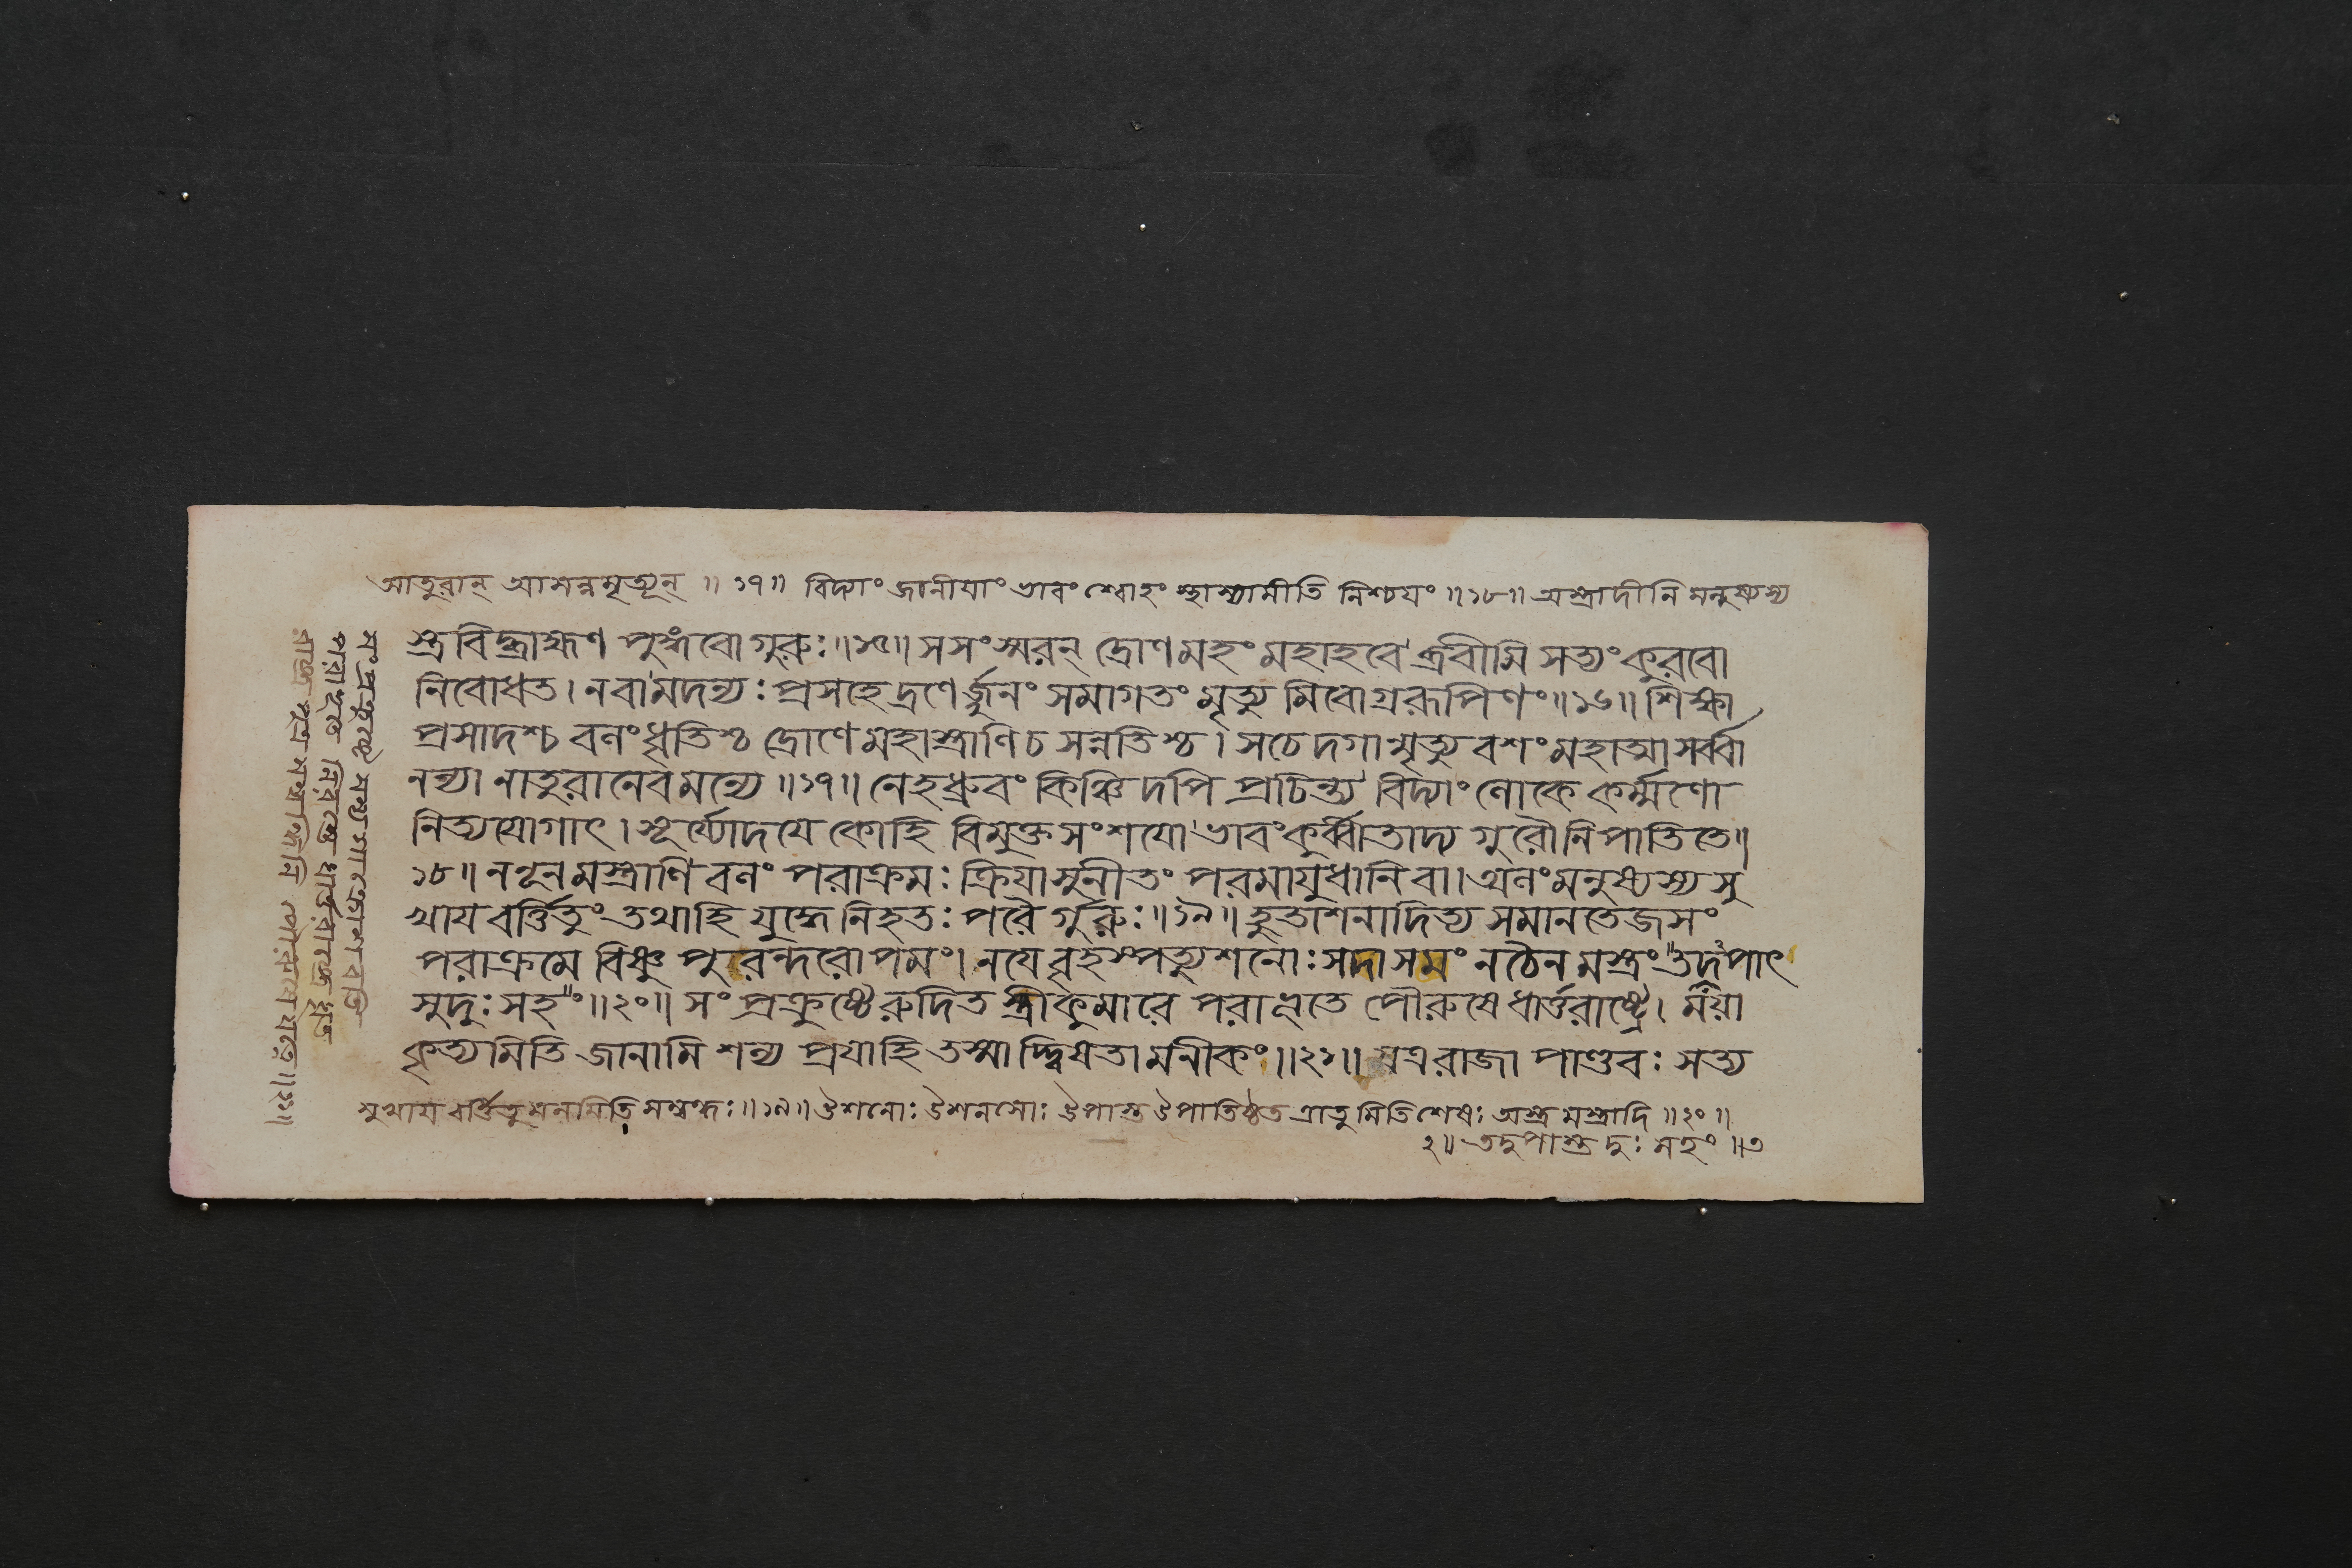 আতুরান্ আসন্নমৃত্যূন্ ॥ ১৭॥ বিদ্যাং জানীয়াং ভাবং শ্বোহং স্থাস্যামীতি নিশ্চয়ং ॥১৮॥ অস্ত্রাদীনি মনুষ্যস্য
স্ত্রবিদ্ব্রাহ্মণ পুঙ্গবো গুরুঃ॥১৫॥ সসংস্মরন্ দ্রোণমহং মহাহবে ব্রবীমি সত্যং কুরবো
নিবোধত। নবামদন্যঃ প্রসহেদ্রণের্জ্জুনং সমাগতং মৃত্যুমিবোগ্ররূপিণং॥১৬॥ শিক্ষা
প্রসাদশ্চ বলংধৃতিশ্চ দ্রোণে মহাস্ত্রাণিচ সন্নতিশ্চ। সচেদগান্মৃত্যুবশংমহাত্মাসর্ব্বা
নন্যা নাতুরানেব মন্যে ॥১৭॥ নেহধ্রুবং কিঞ্চিদপি প্রচিন্ত্য বিদ্যাং লোকে কর্ম্মণো
নিত্যযোগাৎ। সূর্য্যোদয়ে কোহি বিমুক্তসংশয়ো ভাবংকুর্ব্বীতাদ্য গুরৌনিপাতিতে॥
১৮॥ ননূনমস্ত্রাণি বলং পরাক্রমঃ ক্রিয়াসুনীতং পরমায়ুধানি বা। অলংমনুষ্যস্য সু
খায় বর্ত্তিতুং তথাহি যুদ্ধে নিহতঃ পরৈর্গুরুঃ॥১৯॥ হুতাশনাদিত্য সমানতেজসং
পরাক্রমে বিষ্ণু পুরন্দরোপমং। নয়ে বৃহস্পত্যুশনোঃসদাসমং নচৈনমস্ত্রং তদুপাৎ
সুদুঃসহং॥২০॥ সং প্রক্রুষ্টে রুদিত স্ত্রীকুমারে পরাভূতে পৌরুষে ধার্ত্তরাষ্ট্রে। ময়া
কৃত্যমিতি জানামি শল্য প্রয়াহি তস্মাদ্দ্বিষতামনীকং॥২১॥ যত্ররাজা পাণ্ডবঃ সত্য
সুখায় বর্ত্তিতুমলমিতি সম্বন্ধঃ॥১৯॥ উশনোঃ উশনসোঃ উপাস্ত উপাতিষ্ঠত ত্রাতুমিতিশেষঃ অস্ত্রমস্ত্রাদি ॥২০॥
২॥ তদুপাস্ত দুঃসহং ॥৩